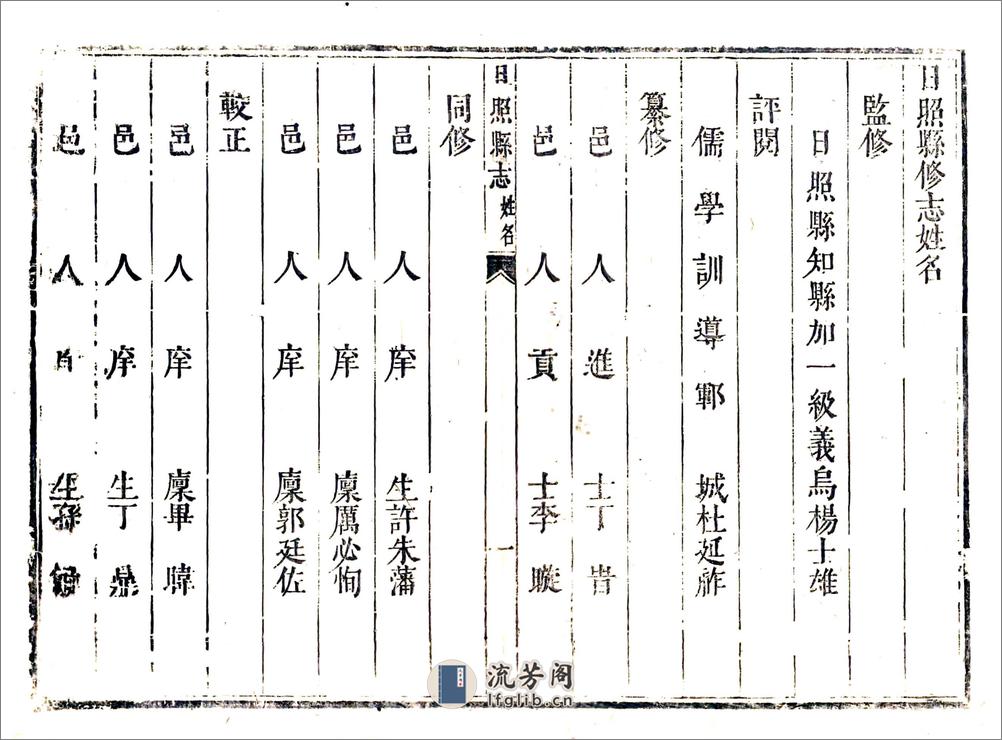 日照縣修志姓名
監修
日照縣知縣加一級義烏楊士雄
評閱
儒學訓導鄆城杜延祚
纂修
邑人進士丁峕
邑人貢士李璇
日照縣志 姓名 一
同修
邑人庠生許朱藩
邑人庠廩厲必恂
邑人庠廩郭廷佐
較正
邑人庠廩畢暐
邑人庠生丁鼎
邑人 生孫
流芳阁
lfglib.cn